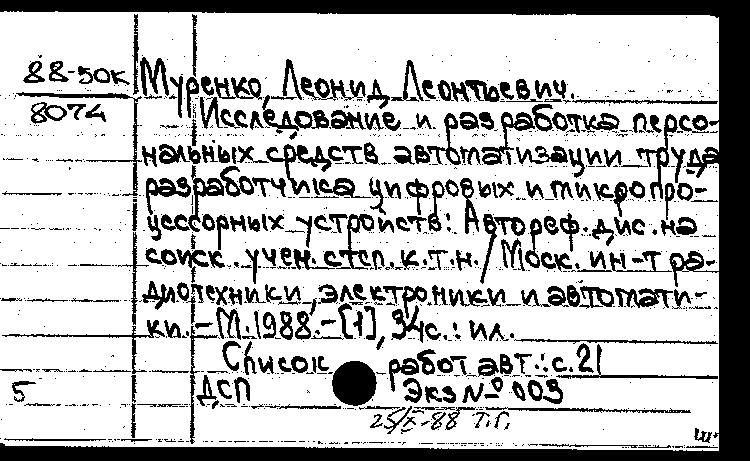 88-50к Муренко, Леонид Леонтьевич.
8074 Исследование и разработка персо-
нальных средств автоматизации труда
разработчика цифровых и микропро-
цессорных устройств: Автореф. дис. на
соиск. учен. степ. к.т.н. / Моск. ин-т ра-
диотехники, электроники и автомати-
ки. - М. 1988. - [1], 34с. : ил.
Список работ авт.: с. 21
5 ДСП Экз № 003
25/X-88 т.г.
ш.